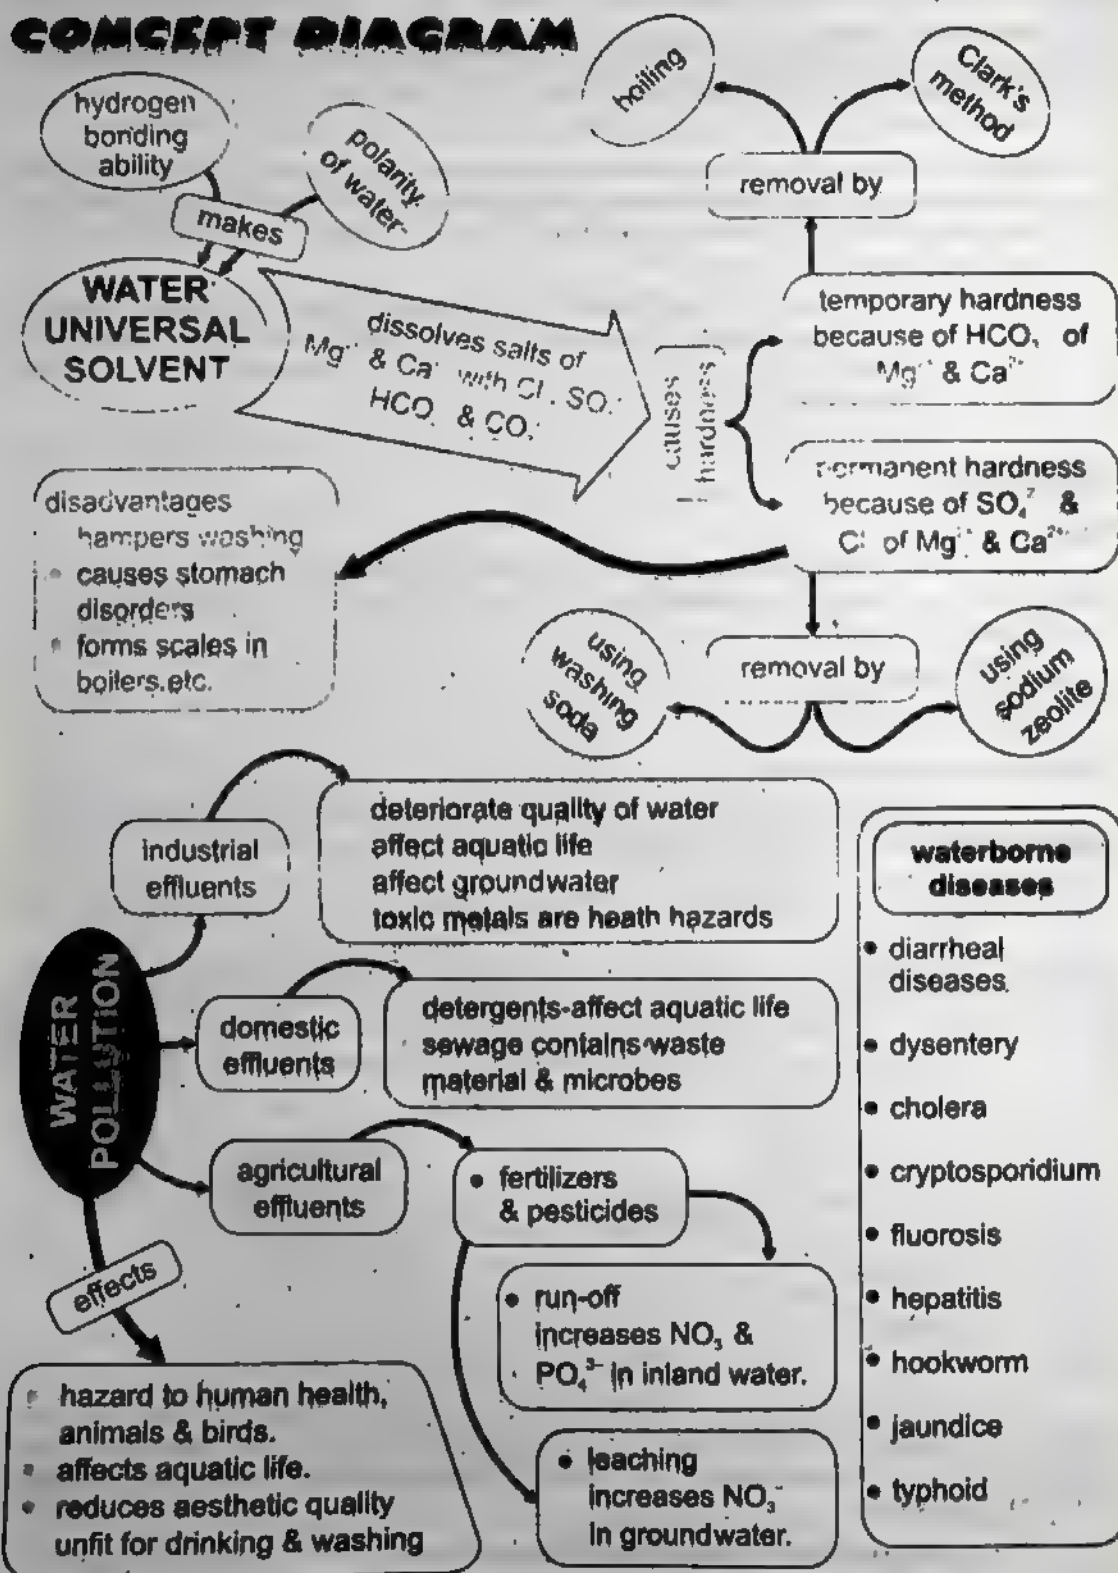 CONCEPT DIAGRAM
hydrogen
bonding
ability
polarity
of water
makes
WATER
UNIVERSAL
SOLVENT
dissolves salts of
Mg & Ca with Cl, SO
HCO & CO
causes
hardness
boiling
Clark's
method
removal by
temporary hardness
because of HCO of
Mg & Ca²⁺
permanent hardness
because of SO₄² &
Cl of Mg & Ca²⁺
disadvantages
hampers washing
• causes stomach
disorders
• forms scales in
boilers.etc.
using
washing
soda
removal by
using
sodium
zeolite
WATER
POLLUTION
industrial
effluents
deteriorate quality of water
affect aquatic life
affect groundwater
toxic metals are heath hazards
domestic
effluents
detergents-affect aquatic life
sewage contains waste
material & microbes
agricultural
effluents
• fertilizers
& pesticides
• run-off
increases NO₃ &
PO₄³⁻ in inland water.
• leaching
increases NO₃⁻
in groundwater.
effects
• hazard to human health,
animals & birds.
• affects aquatic life.
• reduces aesthetic quality
unfit for drinking & washing
waterborne
diseases
• diarrheal
diseases
• dysentery
• cholera
• cryptosporidium
• fluorosis
• hepatitis
• hookworm
• jaundice
• typhoid